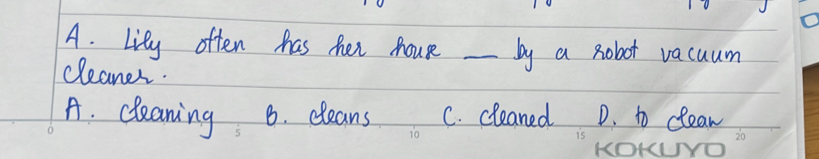 A. Lily often has her house __ by a robot vacuum
cleaner.
A. cleaning B. cleans C. cleaned D. to clean
0 5 10 15 20
KOKUYO